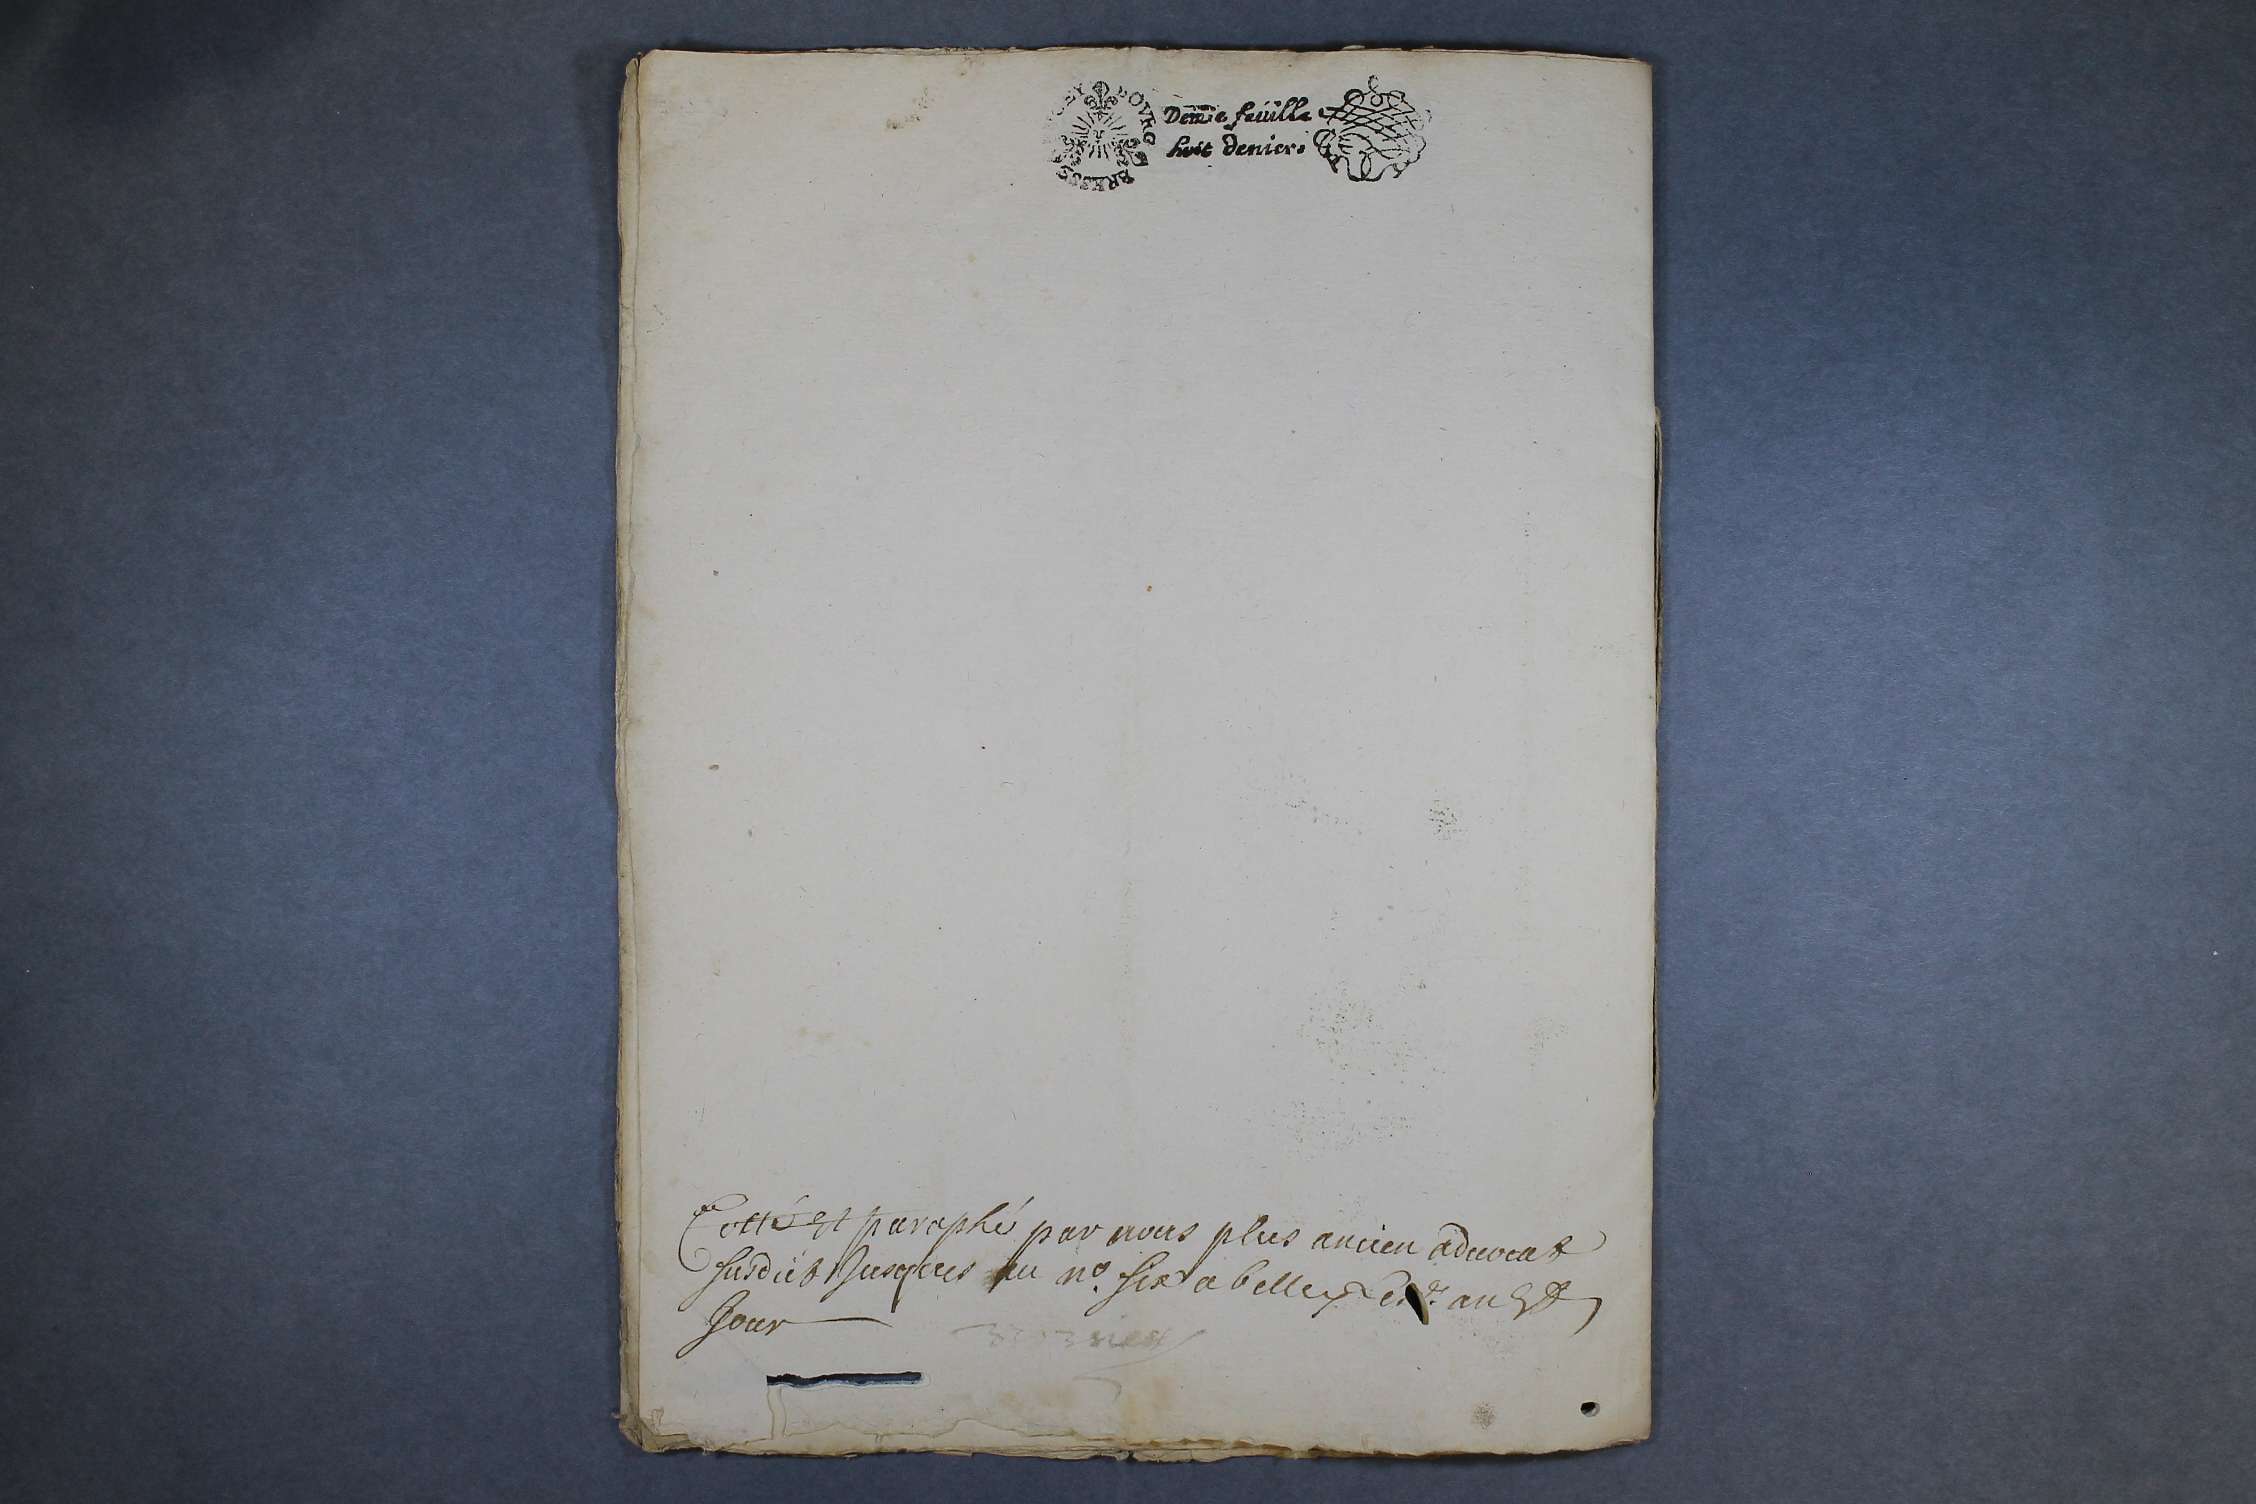 BOURG BRESSE GEY
Demie feüille
huit deniers
Cotté Et paraphé par nous plus ancien advocat
susdit Jusques au no. six a belley Les d. an Et
Jour